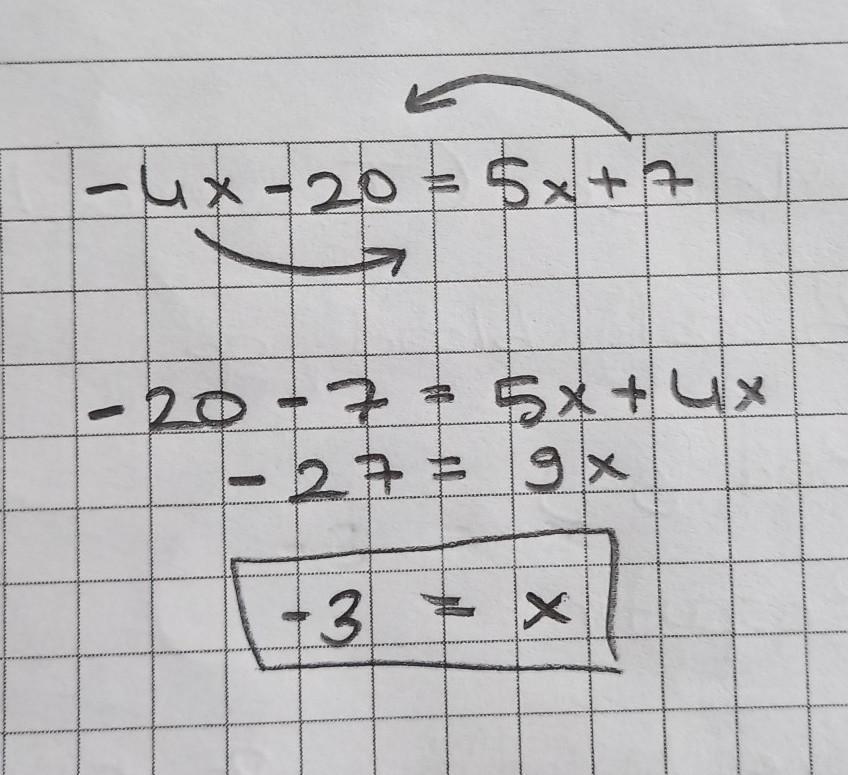 -4x-20=5x+7
-20-7=5x+4x
-27=9x
-3=x